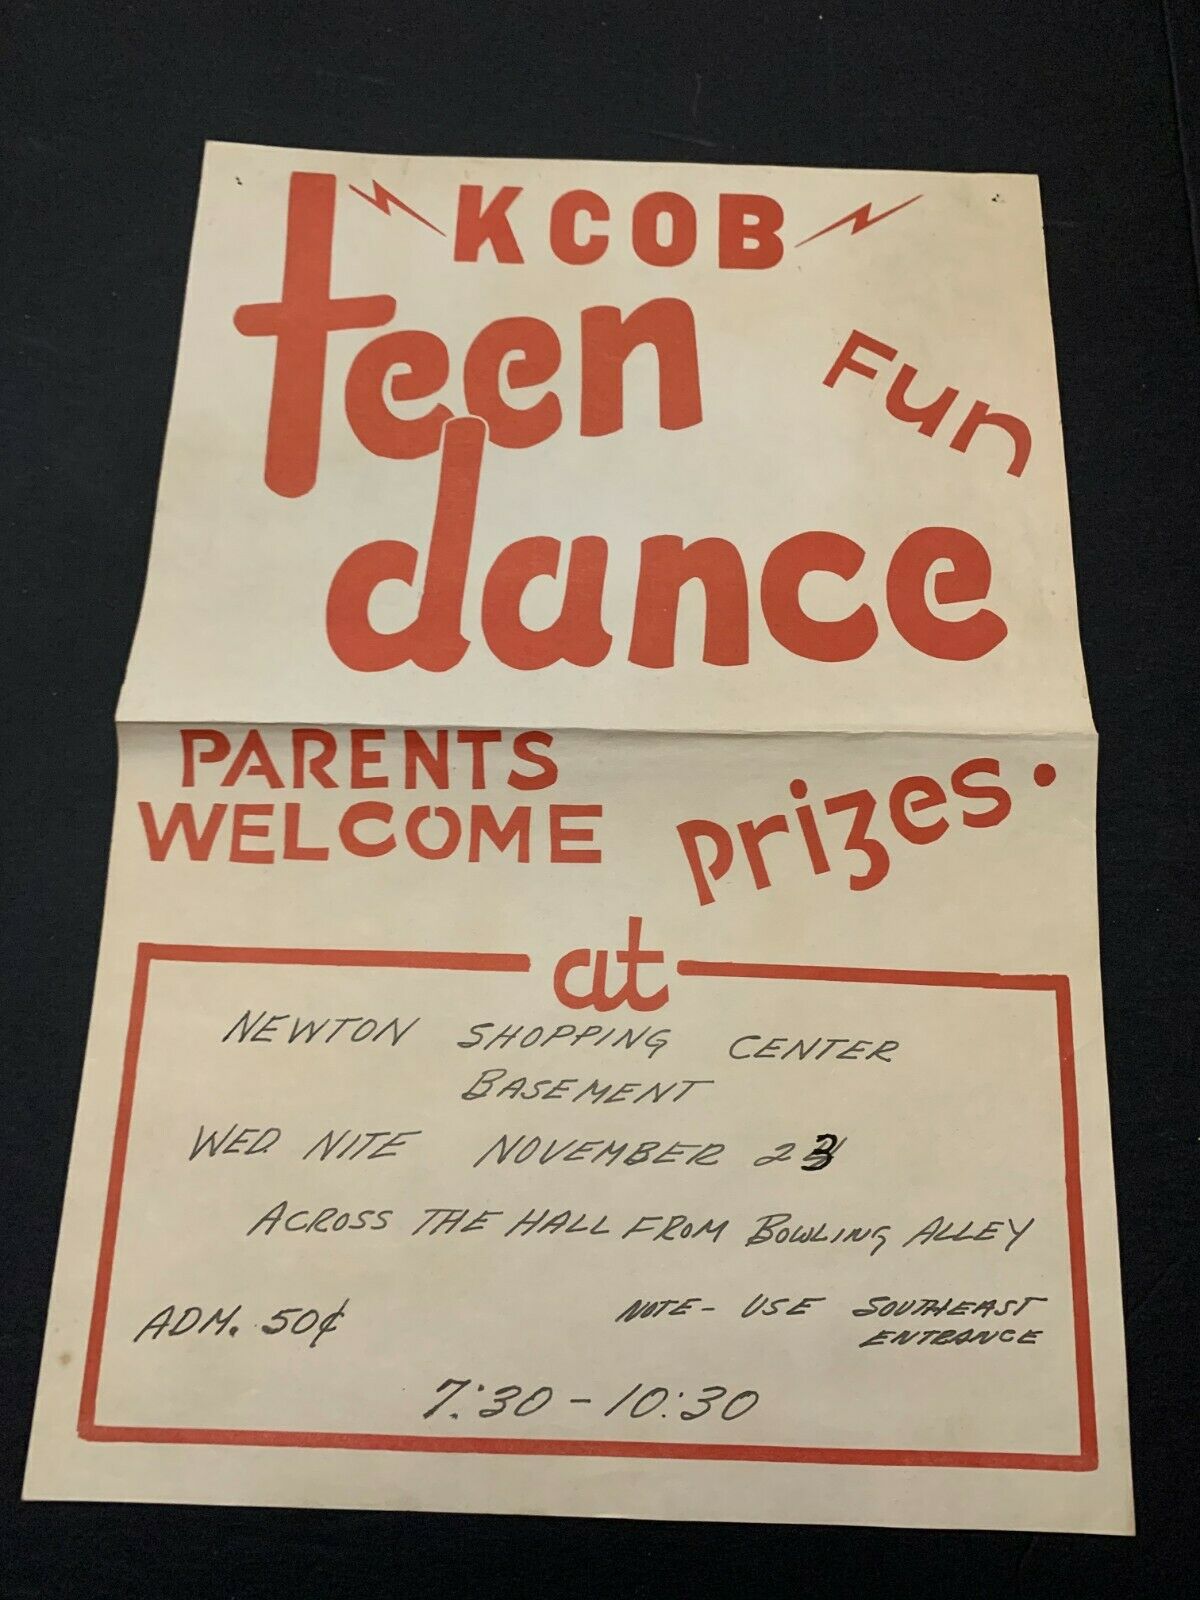 KCOB
teen
Fun
dance
PARENTS
WELCOME
prizes.
at
NEWTON SHOPPING CENTER
BASEMENT
WED. NITE NOVEMBER 23
ACROSS THE HALL FROM BOWLING ALLEY
ADM. 50¢
NOTE - USE SOUTHEAST
ENTRANCE
7:30 - 10:30